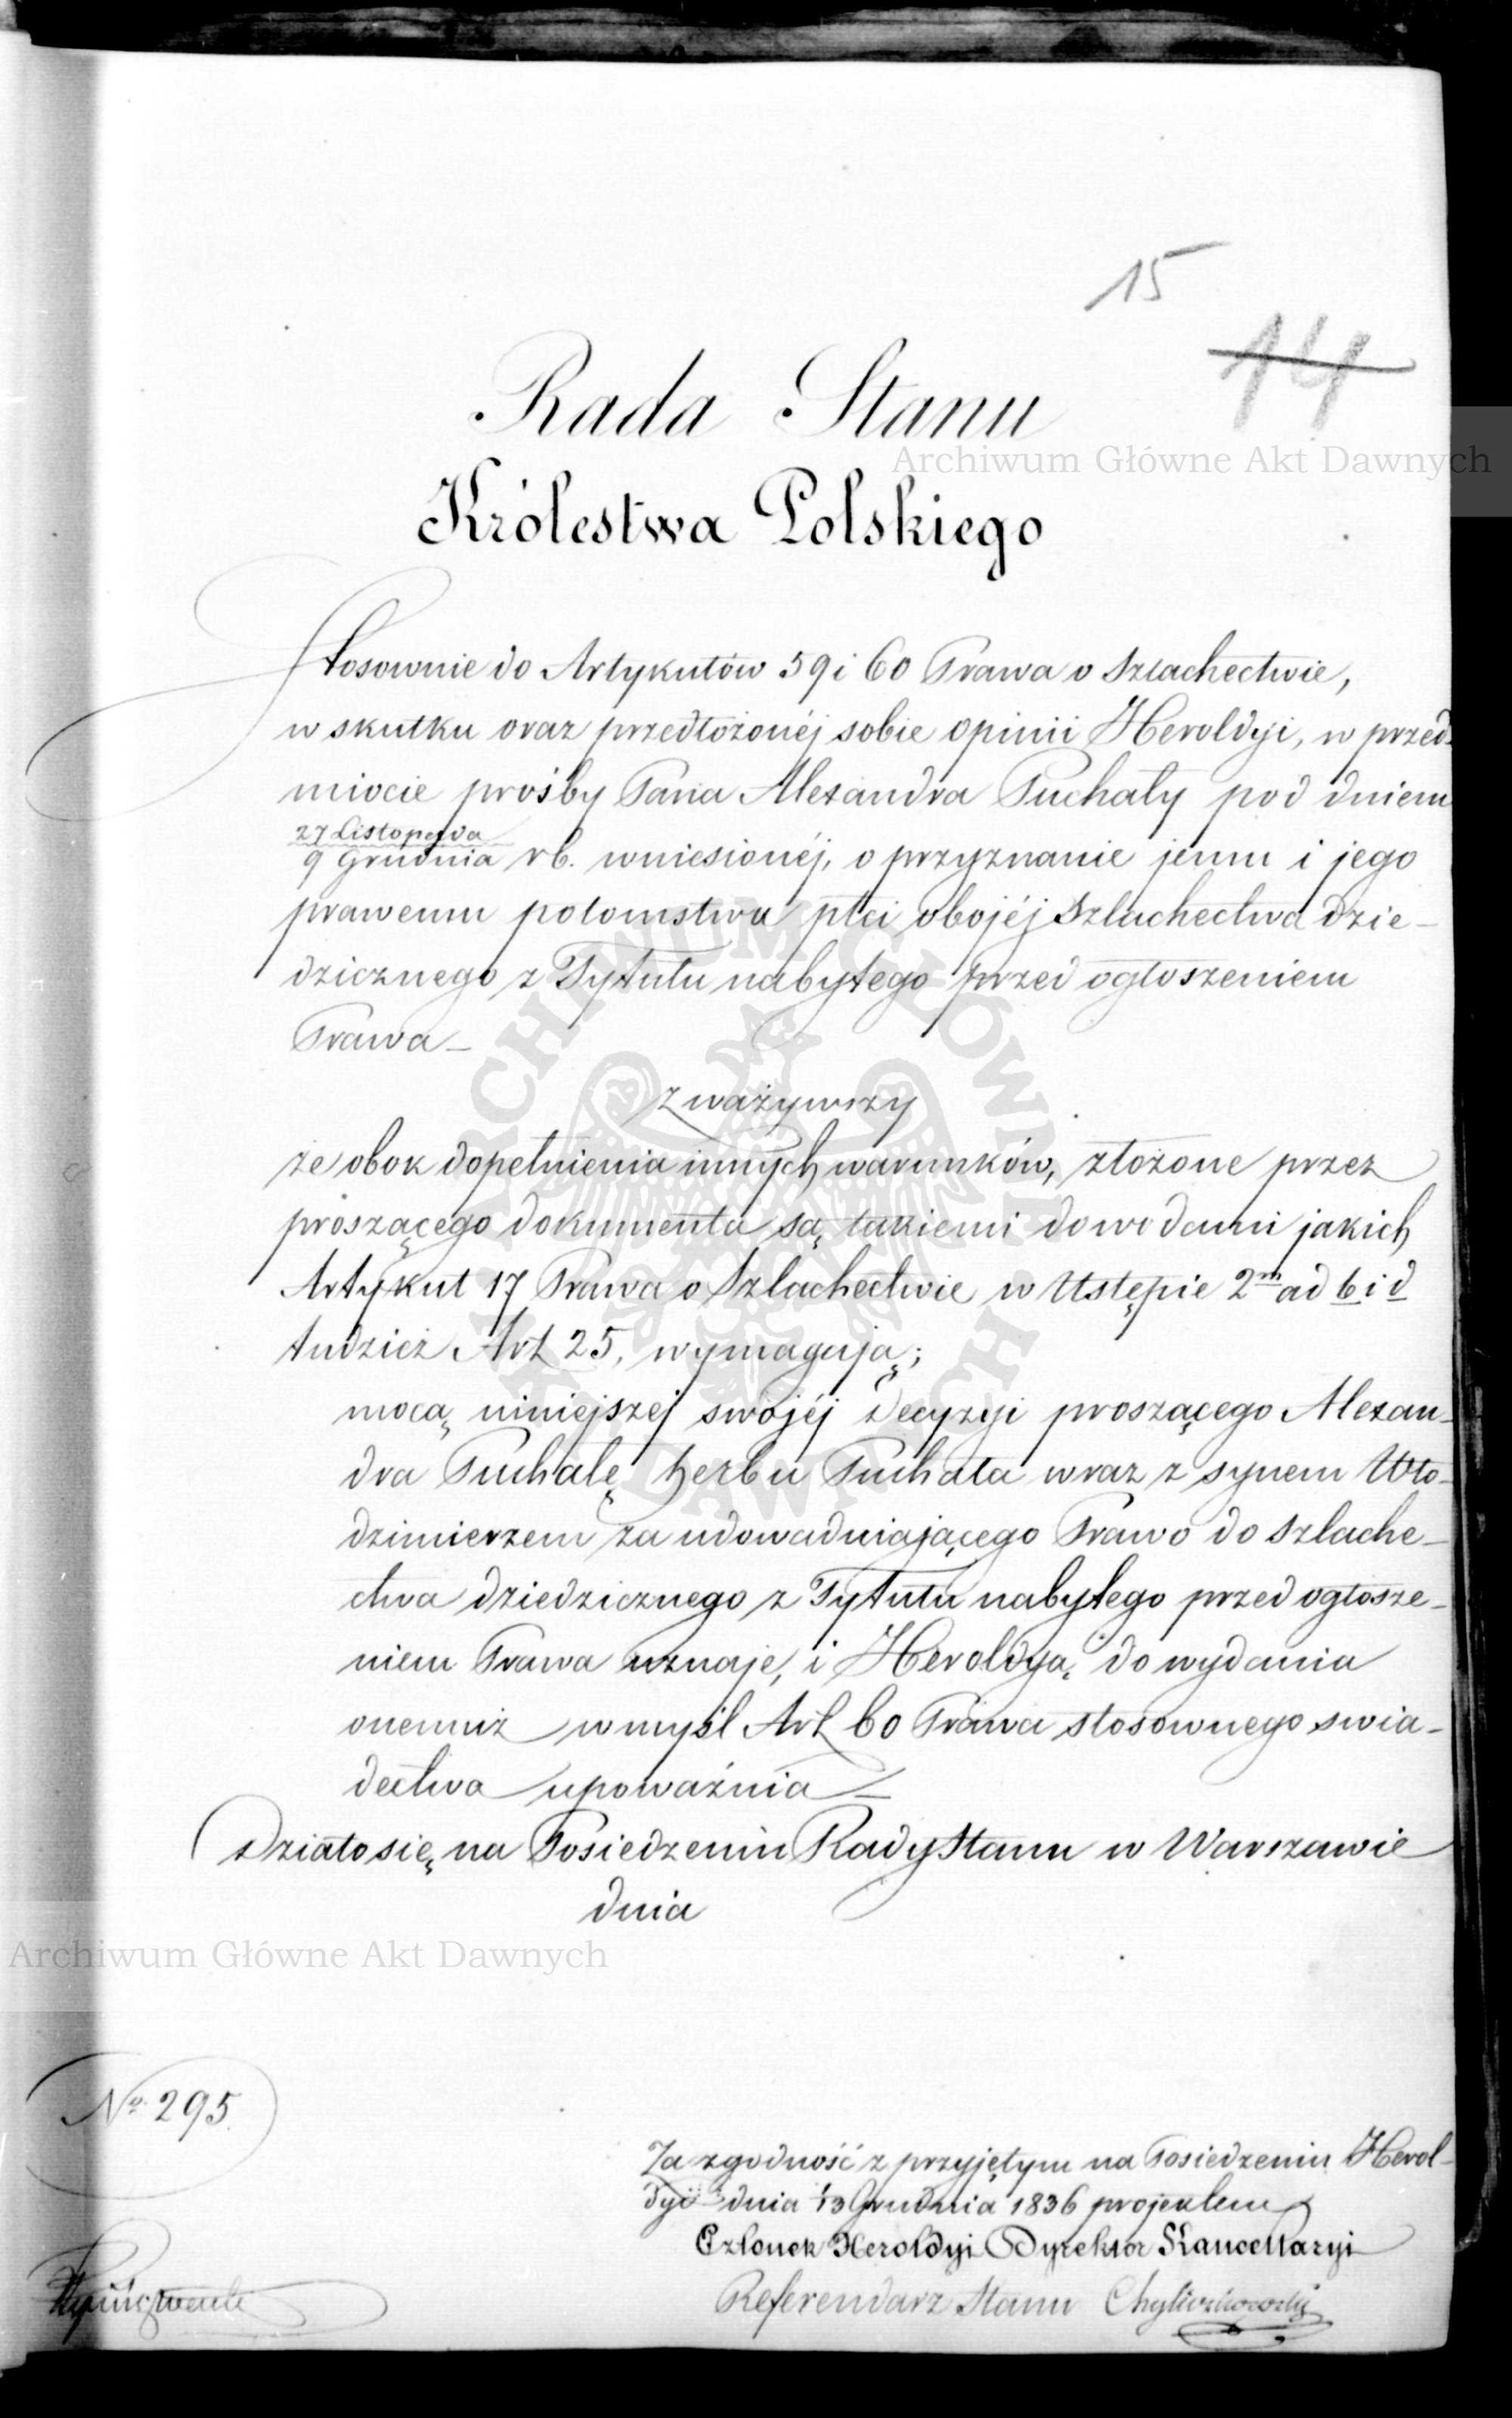 15
14
Rada Stanu
Archiwum Główne Akt Dawnych
Królestwa Polskiego
Stosownie do Artykułów 59 i 60 Prawa o Szlachectwie,
w skutku oraz przedłożonéj sobie opinii Heroldyi, w przed-
miocie prośby Pana Alexandra Puchały pod dniem
27 Listopada
9 Grudnia rb. wniesionéj, o przyznanie jemu i jego
prawemu potomstwu płci obojéj Szlachectwa dzie-
dzicznego z Tytułu nabytego przed ogłoszeniem
Prawa –
zważywszy
że obok dopełnienia innych warunków, złożone przez
proszącego dokumenta są takiemi dowodami jakich
Artykuł 17 Prawa o Szlachectwie w Ustępie 2m ad b i d
tudzież Art 25, wymagają;
mocą niniejszej swojéj Decyzyi proszącego Alexan-
dra Puchałę herbu Puchała wraz z synem Wło-
dzimierzem za udowadniającego Prawo do szlache-
ctwa dziedzicznego z Tytułu nabytego przed ogłosze-
niem Prawa uznaje, i Heroldyą do wydania
onemuż w myśl Art 60 Prawa stosownego świa-
dectwa upoważnia –
Działo się na Posiedzeniu Rady Stanu w Warszawie
dnia
Archiwum Główne Akt Dawnych
No 295.
Za zgodność z przyjętym na Posiedzeniu Herol-
dyi dnia 13 Grudnia 1836 projektem
Członek Heroldyi Dyrektor Kancellaryi
Referendarz Stanu Chyliczkowski
ARCHIWUM GŁÓWNE AKT DAWNYCH